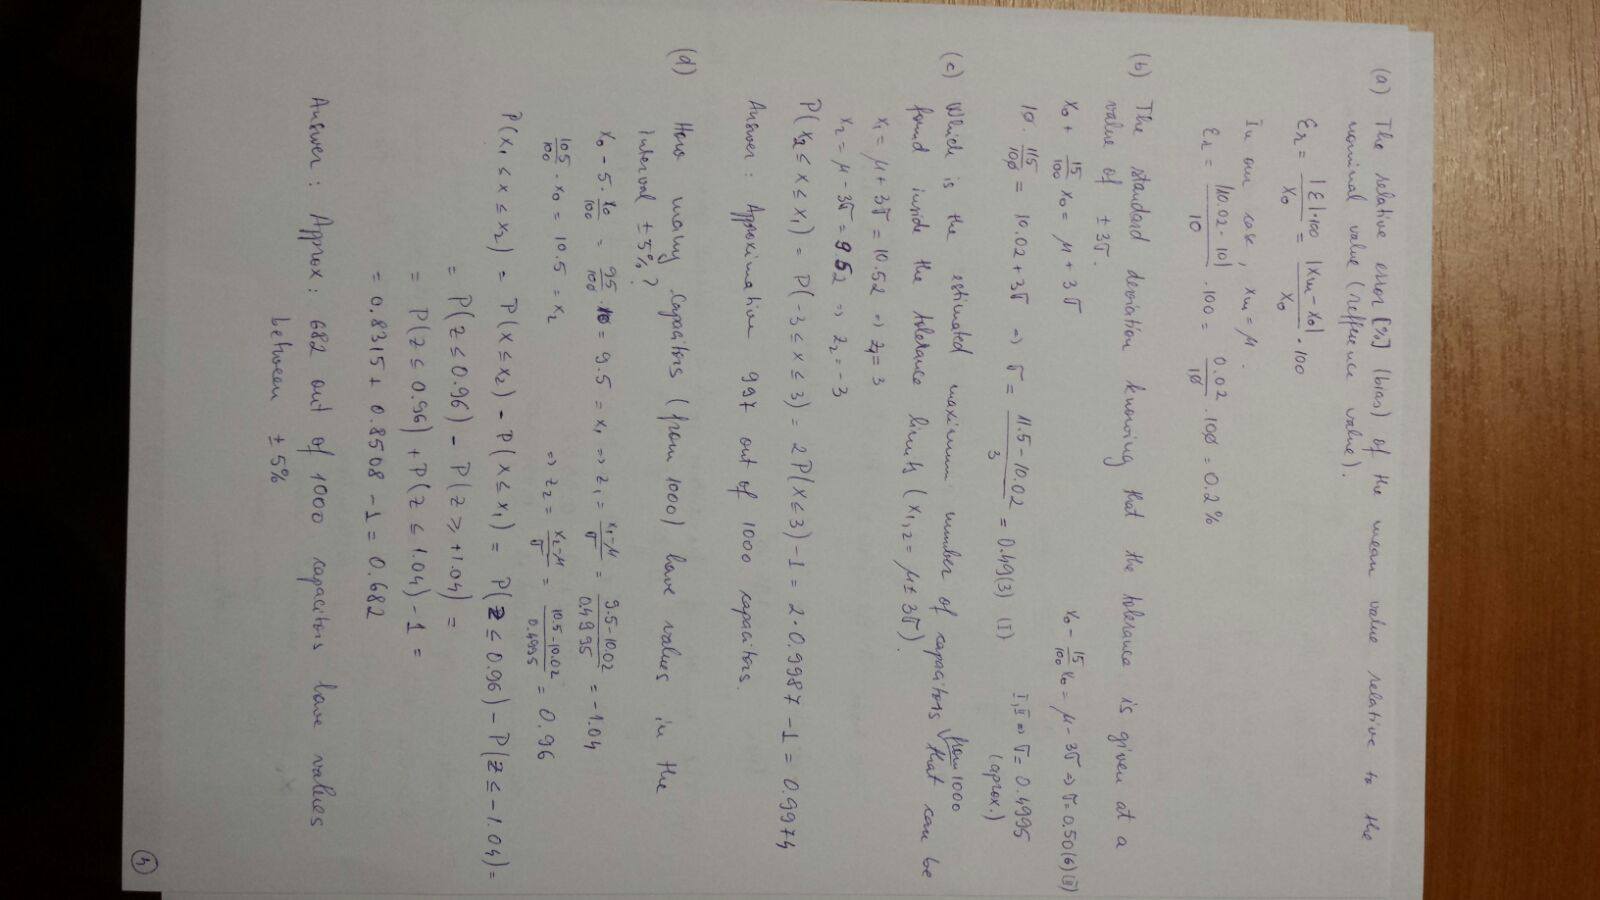 (a) The relative error [%] (bias) of the mean value relative to the
nominal value (refference value).
εr = |ε|·100 / x₀ = |xm - x₀| / x₀ · 100
In our case, xm = μ.
εr = |10.02 - 10| / 10 · 100 = 0.02 / 10 · 100 = 0.2 %
(b) The standard deviation knowing that the tolerance is given at a
value of ± 3σ.
x₀ + 15/100 x₀ = μ + 3σ
x₀ - 15/100 x₀ = μ - 3σ ⇒ σ = 0.50(6) (II)
10 · 115/100 = 10.02 + 3σ ⇒ σ = (11.5 - 10.02) / 3 = 0.49(3) (I)
I, II ⇒ σ = 0.4995
(aprox.)
(c) Which is the estimated maximum number of capacitors from 1000 that can be
found inside the tolerance limits (x₁,₂ = μ ± 3σ).
x₁ = μ + 3σ = 10.52 ⇒ z₁ = 3
x₂ = μ - 3σ = 9.52 ⇒ z₂ = -3
P(x₂ ≤ x ≤ x₁) = P(-3 ≤ x ≤ 3) = 2P(x ≤ 3) - 1 = 2 · 0.9987 - 1 = 0.9974
Answer: Approximative 997 out of 1000 capacitors.
(d) How many capacitors (from 1000) have values in the
interval ± 5%?
x₀ - 5 · x₀/100 = 95/100 · 10 = 9.5 = x₁ ⇒ z₁ = (x₁ - μ)/σ = (9.5 - 10.02)/0.4995 = -1.04
105/100 · x₀ = 10.5 = x₂ ⇒ z₂ = (x₂ - μ)/σ = (10.5 - 10.02)/0.4995 = 0.96
P(x₁ ≤ x ≤ x₂) = P(x ≤ x₂) - P(x ≤ x₁) = P(z ≤ 0.96) - P(z ≤ -1.04) =
= P(z ≤ 0.96) - P(z ≥ +1.04) =
= P(z ≤ 0.96) + P(z ≤ 1.04) - 1 =
= 0.8315 + 0.8508 - 1 = 0.682
Answer: Approx: 682 out of 1000 capacitors have values
between ± 5%